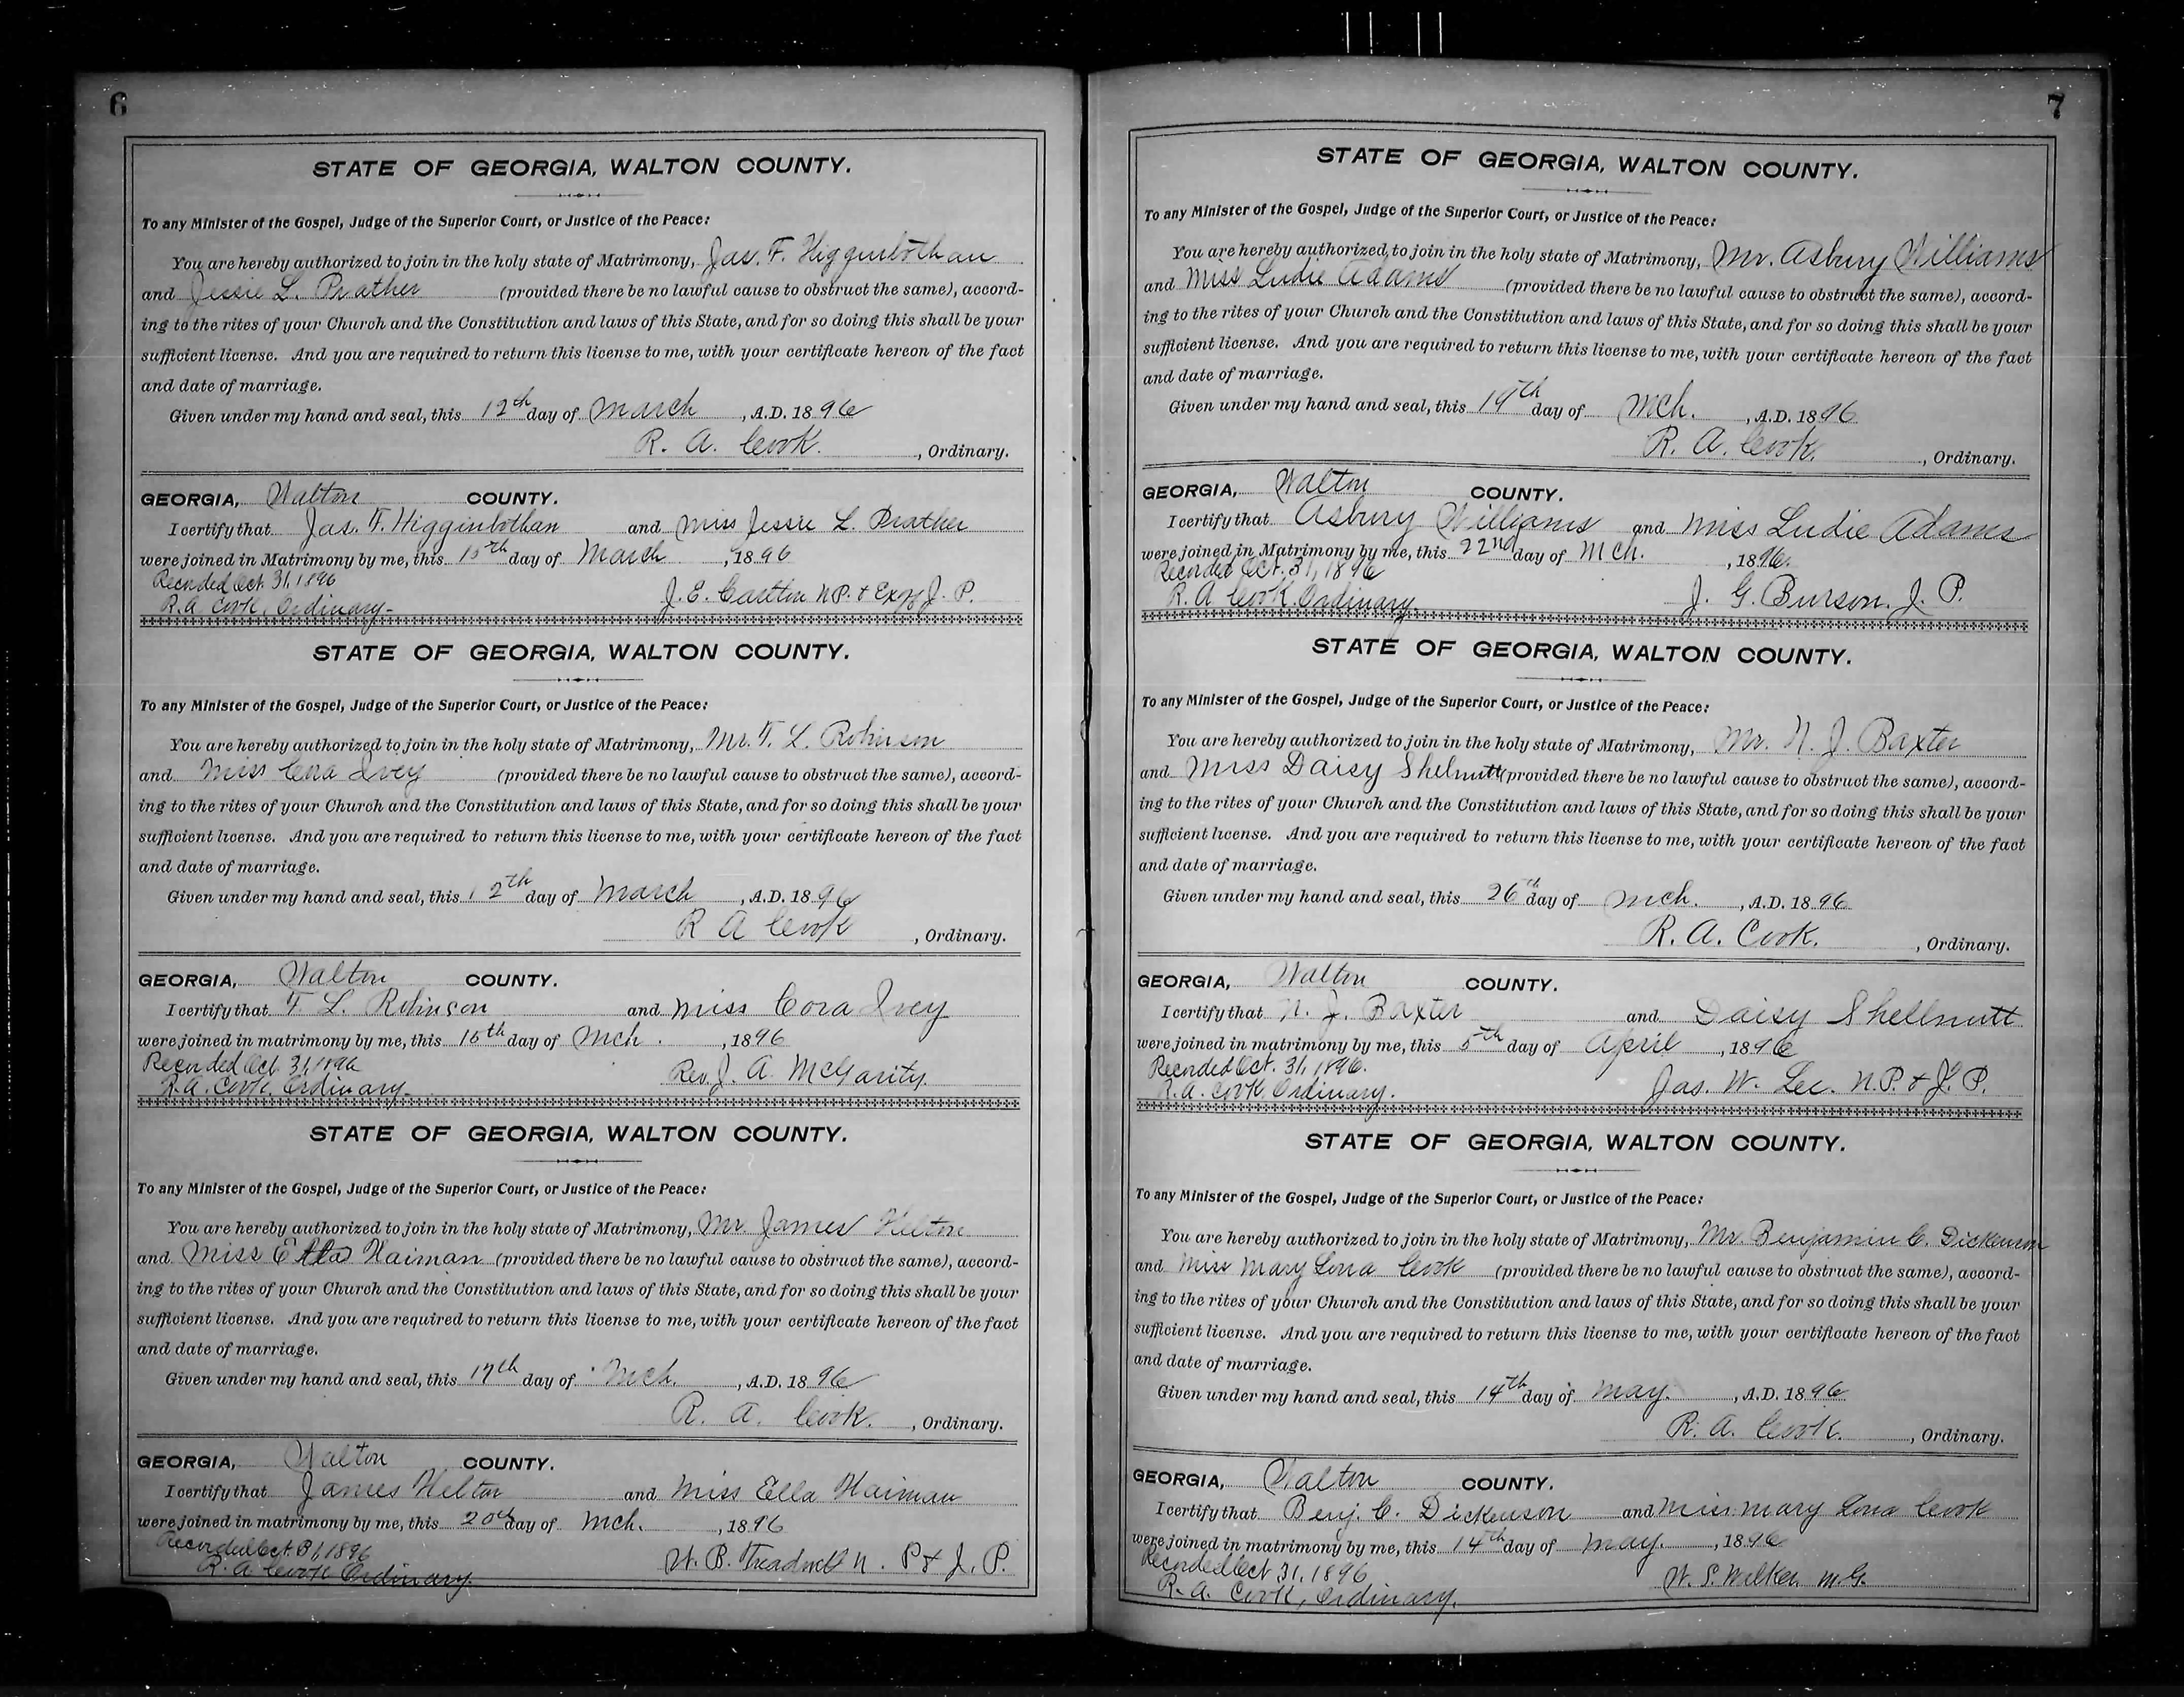 6
STATE OF GEORGIA, WALTON COUNTY.
To any Minister of the Gospel, Judge of the Superior Court, or Justice of the Peace:
You are hereby authorized to join in the holy state of Matrimony, Jas. F. Higginbothan
and Jessie L. Prather (provided there be no lawful cause to obstruct the same), accord-
ing to the rites of your Church and the Constitution and laws of this State, and for so doing this shall be your
sufficient license. And you are required to return this license to me, with your certificate hereon of the fact
and date of marriage.
Given under my hand and seal, this 12th day of March, A.D. 1896
R. A. Cook. , Ordinary.
GEORGIA, Walton COUNTY.
I certify that Jas. F. Higginbothan and Miss Jessie L. Prather
were joined in Matrimony by me, this 15th day of March, 1896
Recorded Oct. 31, 1896
R.A. Cook, Ordinary-
J. E. Carlton N.P. & Exof J. P.
STATE OF GEORGIA, WALTON COUNTY.
To any Minister of the Gospel, Judge of the Superior Court, or Justice of the Peace:
You are hereby authorized to join in the holy state of Matrimony, Mr. F. L. Robinson
and Miss Cora Ivey (provided there be no lawful cause to obstruct the same), accord-
ing to the rites of your Church and the Constitution and laws of this State, and for so doing this shall be your
sufficient license. And you are required to return this license to me, with your certificate hereon of the fact
and date of marriage.
Given under my hand and seal, this 12th day of March, A.D. 1896
R A Cook , Ordinary.
GEORGIA, Walton COUNTY.
I certify that F. L. Robinson and Miss Cora Ivey
were joined in matrimony by me, this 15th day of Mch. , 1896
Recorded Oct. 31, 1896
R.A. Cook, Ordinary-
Rev. J. A. McGarity.
STATE OF GEORGIA, WALTON COUNTY.
To any Minister of the Gospel, Judge of the Superior Court, or Justice of the Peace:
You are hereby authorized to join in the holy state of Matrimony, Mr. James Helton
and Miss Etta Haiman (provided there be no lawful cause to obstruct the same), accord-
ing to the rites of your Church and the Constitution and laws of this State, and for so doing this shall be your
sufficient license. And you are required to return this license to me, with your certificate hereon of the fact
and date of marriage.
Given under my hand and seal, this 17th day of Mch. , A.D. 1896
R. A. Cook. , Ordinary.
GEORGIA, Walton COUNTY.
I certify that James Helton and Miss Ella Haiman
were joined in matrimony by me, this 20th day of Mch. , 1896
Recorded Oct. 31, 1896
R. A Cook Ordinary.
W. B. Treadwell N. P & J. P.
7
STATE OF GEORGIA, WALTON COUNTY.
To any Minister of the Gospel, Judge of the Superior Court, or Justice of the Peace:
You are hereby authorized to join in the holy state of Matrimony, Mr. Asbury Williams
and Miss Ludie Adams (provided there be no lawful cause to obstruct the same), accord-
ing to the rites of your Church and the Constitution and laws of this State, and for so doing this shall be your
sufficient license. And you are required to return this license to me, with your certificate hereon of the fact
and date of marriage.
Given under my hand and seal, this 19th day of Mch. , A.D. 1896
R. A. Cook. , Ordinary.
GEORGIA, Walton COUNTY.
I certify that Asbury Williams and Miss Ludie Adams
were joined in Matrimony by me, this 22nd day of Mch. , 1896.
Recorded Oct. 31, 1896
R. A Cook, Ordinary
J. G. Burson. J. P.
STATE OF GEORGIA, WALTON COUNTY.
To any Minister of the Gospel, Judge of the Superior Court, or Justice of the Peace:
You are hereby authorized to join in the holy state of Matrimony, Mr. N. J. Baxter
and Miss Daisy Shelnutt (provided there be no lawful cause to obstruct the same), accord-
ing to the rites of your Church and the Constitution and laws of this State, and for so doing this shall be your
sufficient license. And you are required to return this license to me, with your certificate hereon of the fact
and date of marriage.
Given under my hand and seal, this 26th day of Mch. , A.D. 1896
R. A. Cook. , Ordinary.
GEORGIA, Walton COUNTY.
I certify that N. J. Baxter and Daisy Shellnutt
were joined in matrimony by me, this 5th day of April, 1896
Recorded Oct. 31, 1896.
R.A. Cook, Ordinary.
Jas. W. Lee. N.P. & J. P.
STATE OF GEORGIA, WALTON COUNTY.
To any Minister of the Gospel, Judge of the Superior Court, or Justice of the Peace:
You are hereby authorized to join in the holy state of Matrimony, Mr. Benjamin C. Dickenson
and Miss Mary Lona Cook (provided there be no lawful cause to obstruct the same), accord-
ing to the rites of your Church and the Constitution and laws of this State, and for so doing this shall be your
sufficient license. And you are required to return this license to me, with your certificate hereon of the fact
and date of marriage.
Given under my hand and seal, this 14th day of May. , A.D. 1896
R. A. Cook. , Ordinary.
GEORGIA, Walton COUNTY.
I certify that Benj. C. Dickenson and Miss Mary Lona Cook
were joined in matrimony by me, this 14th day of May. , 1896
Recorded Oct 31, 1896
R. A. Cook, Ordinary.
W. S. Walker M.G.